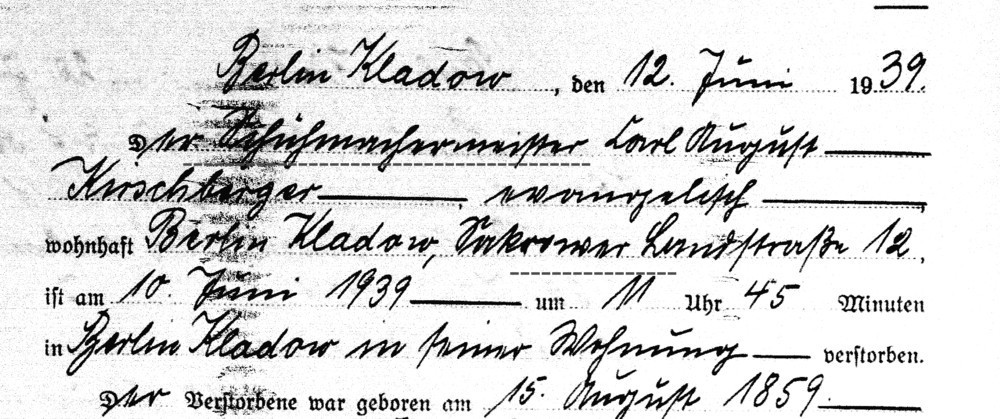 Berlin Kladow, den 12. Juni 1939.
Der Schuhmachermeister Carl August
Kirschberger, evangelisch,
wohnhaft Berlin Kladow, Sakrower Landstraße 12,
ist am 10. Juni 1939 um 11 Uhr 45 Minuten
in Berlin Kladow in seiner Wohnung verstorben.
Der Verstorbene war geboren am 15. August 1859